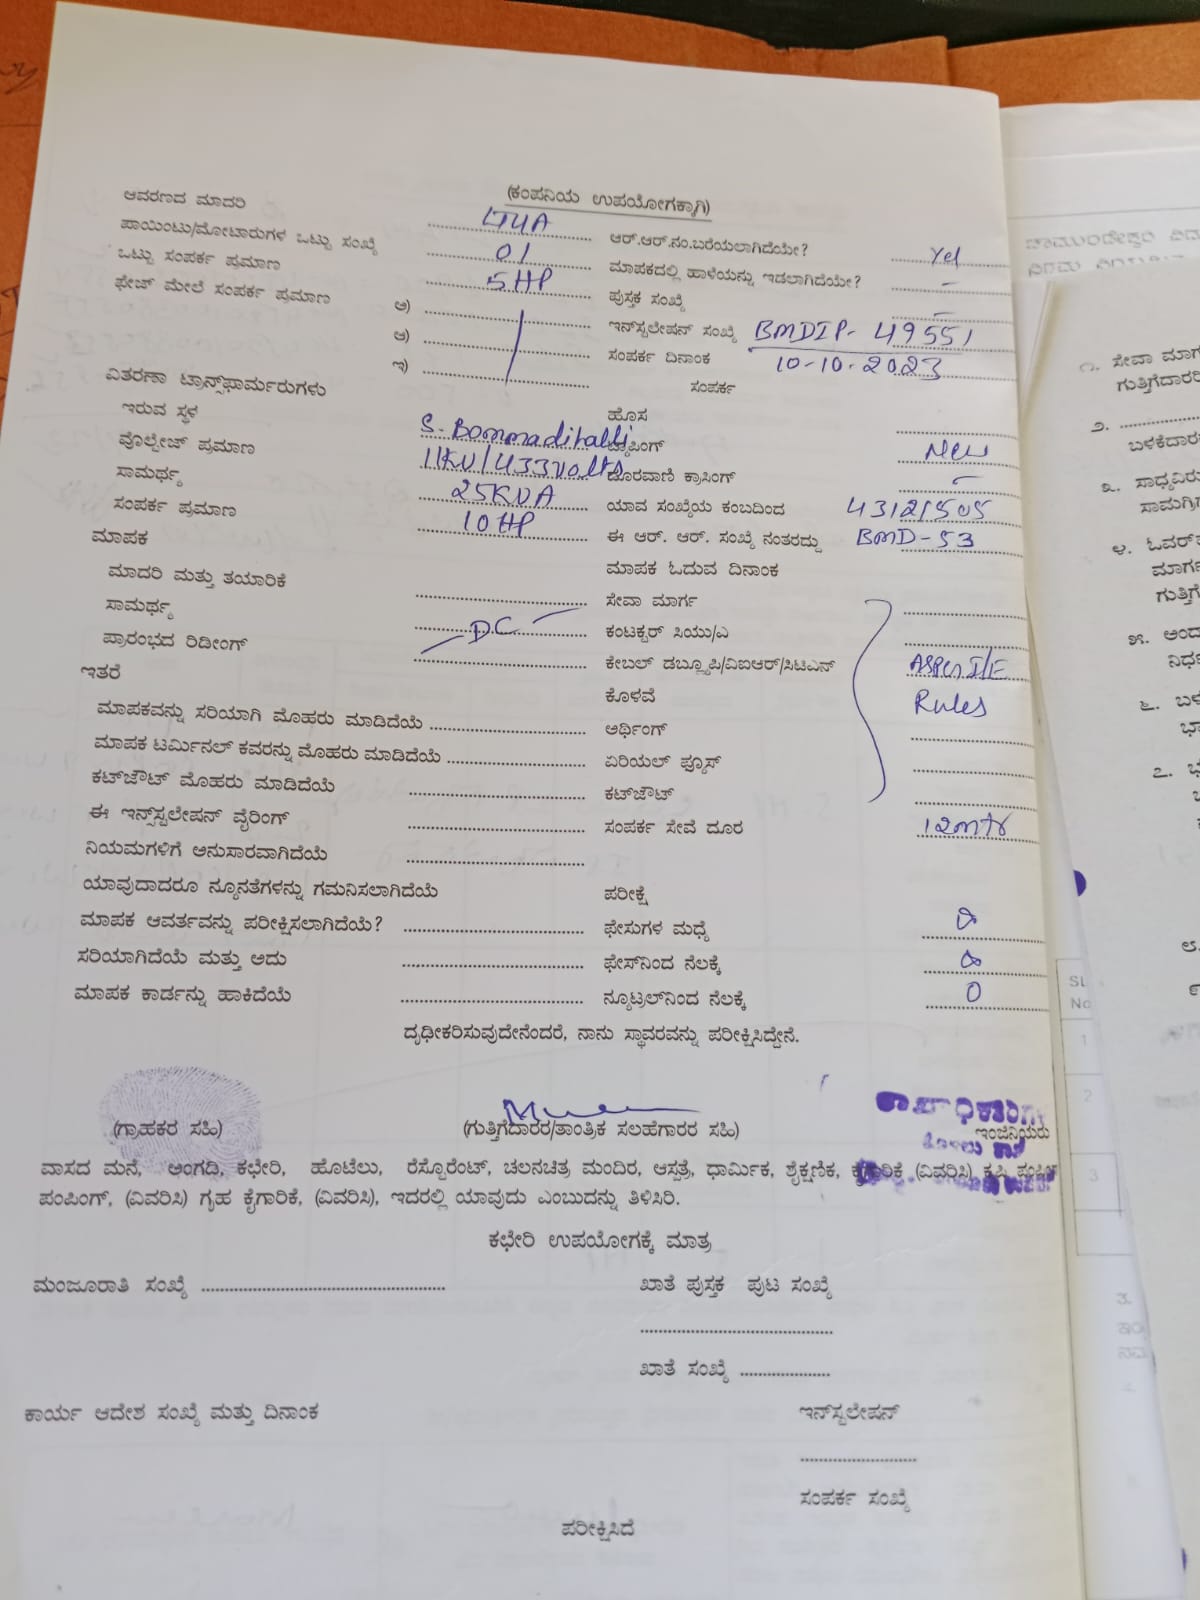 (ಕಂಪನಿಯ ಉಪಯೋಗಕ್ಕಾಗಿ)
ಆವರಣದ ಮಾದರಿ LT4A ಆರ್.ಆರ್.ನಂ.ಬರೆಯಲಾಗಿದೆಯೇ? Yes
ಪಾಯಿಂಟು/ಮೋಟಾರುಗಳ ಒಟ್ಟು ಸಂಖ್ಯೆ 01 ಮಾಪಕದಲ್ಲಿ ಹಾಳೆಯನ್ನು ಇಡಲಾಗಿದೆಯೇ? -
ಒಟ್ಟು ಸಂಪರ್ಕ ಪ್ರಮಾಣ 5 HP ಪುಸ್ತಕ ಸಂಖ್ಯೆ -
ಫೇಜ್ ಮೇಲೆ ಸಂಪರ್ಕ ಪ್ರಮಾಣ ಅ) ಇನ್‌ಸ್ಟಲೇಷನ್ ಸಂಖ್ಯೆ BMDIP-49551
ಆ) ಸಂಪರ್ಕ ದಿನಾಂಕ 10-10-2023
ಇ) ಸಂಪರ್ಕ
ವಿತರಣಾ ಟ್ರಾನ್ಸ್‌ಫಾರ್ಮರುಗಳು ಹೊಸ
ಇರುವ ಸ್ಥಳ S. Bommadihalli ಟ್ಯಾಪಿಂಗ್ New
ವೊಲ್ಟೇಜ್ ಪ್ರಮಾಣ 11KV/433volts ದೂರವಾಣಿ ಕ್ರಾಸಿಂಗ್ -
ಸಾಮರ್ಥ್ಯ 25KVA ಯಾವ ಸಂಖ್ಯೆಯ ಕಂಬದಿಂದ
ಸಂಪರ್ಕ ಪ್ರಮಾಣ 10 HP ಈ ಆರ್. ಆರ್. ಸಂಖ್ಯೆ ನಂತರದ್ದು BMD-53
ಮಾಪಕ ಮಾಪಕ ಓದುವ ದಿನಾಂಕ
ಮಾದರಿ ಮತ್ತು ತಯಾರಿಕೆ ಸೇವಾ ಮಾರ್ಗ
ಸಾಮರ್ಥ್ಯ DC ಕಂಟಕ್ಟರ್ ಸಿಯು/ಎ
ಪ್ರಾರಂಭದ ರಿಡೀಂಗ್ ಕೇಬಲ್ ಡಬ್ಲ್ಯೂಪಿ/ವಿಐಆರ್/ಸಿಟಿಎನ್ AsPer I/E
ಇತರೆ ಕೊಳವೆ Rules
ಮಾಪಕವನ್ನು ಸರಿಯಾಗಿ ಮೊಹರು ಮಾಡಿದೆಯೆ ಅರ್ಥಿಂಗ್
ಮಾಪಕ ಟರ್ಮಿನಲ್ ಕವರನ್ನು ಮೊಹರು ಮಾಡಿದೆಯೆ ಏರಿಯಲ್ ಪ್ಯೂಸ್
ಕಟ್‌ಜೌಟ್ ಮೊಹರು ಮಾಡಿದೆಯೆ ಕಟ್‌ಜೌಟ್
ಈ ಇನ್ಸ್‌ಸ್ಟಲೇಷನ್ ವೈರಿಂಗ್ ಸಂಪರ್ಕ ಸೇವೆ ದೂರ 12mtr
ನಿಯಮಗಳಿಗೆ ಅನುಸಾರವಾಗಿದೆಯೆ
ಯಾವುದಾದರೂ ನ್ಯೂನತೆಗಳನ್ನು ಗಮನಿಸಲಾಗಿದೆಯೆ ಪರೀಕ್ಷೆ
ಮಾಪಕ ಆವರ್ತವನ್ನು ಪರೀಕ್ಷಿಸಲಾಗಿದೆಯೆ? ಫೇಸುಗಳ ಮಧ್ಯೆ
ಸರಿಯಾಗಿದೆಯೆ ಮತ್ತು ಅದು ಫೇಸ್‌ನಿಂದ ನೆಲಕ್ಕೆ
ಮಾಪಕ ಕಾರ್ಡನ್ನು ಹಾಕಿದೆಯೆ ನ್ಯೂಟ್ರಲ್‌ನಿಂದ ನೆಲಕ್ಕೆ 0
ದೃಢೀಕರಿಸುವುದೇನೆಂದರೆ, ನಾನು ಸ್ಥಾವರವನ್ನು ಪರೀಕ್ಷಿಸಿದ್ದೇನೆ.
(ಗ್ರಾಹಕರ ಸಹಿ) (ಗುತ್ತಿಗೆದಾರರ/ತಾಂತ್ರಿಕ ಸಲಹೆಗಾರರ ಸಹಿ) ಇಂಜಿನಿಯರು
ವಾಸದ ಮನೆ, ಅಂಗಡಿ, ಕಛೇರಿ, ಹೊಟೆಲು, ರೆಸ್ಟೋರೆಂಟ್, ಚಲನಚಿತ್ರ ಮಂದಿರ, ಆಸ್ಪತ್ರೆ, ಧಾರ್ಮಿಕ, ಶೈಕ್ಷಣಿಕ, ಕೈಗಾರಿಕೆ (ವಿವರಿಸಿ) ಕೃಷಿ
ಪಂಪಿಂಗ್, (ವಿವರಿಸಿ) ಗೃಹ ಕೈಗಾರಿಕೆ, (ವಿವರಿಸಿ), ಇದರಲ್ಲಿ ಯಾವುದು ಎಂಬುದನ್ನು ತಿಳಿಸಿರಿ.
ಕಛೇರಿ ಉಪಯೋಗಕ್ಕೆ ಮಾತ್ರ
ಮಂಜೂರಾತಿ ಸಂಖ್ಯೆ ಖಾತೆ ಪುಸ್ತಕ ಪುಟ ಸಂಖ್ಯೆ
ಖಾತೆ ಸಂಖ್ಯೆ
ಕಾರ್ಯ ಆದೇಶ ಸಂಖ್ಯೆ ಮತ್ತು ದಿನಾಂಕ ಇನ್‌ಸ್ಟಲೇಷನ್
ಸಂಪರ್ಕ ಸಂಖ್ಯೆ
ಪರೀಕ್ಷಿಸಿದೆ